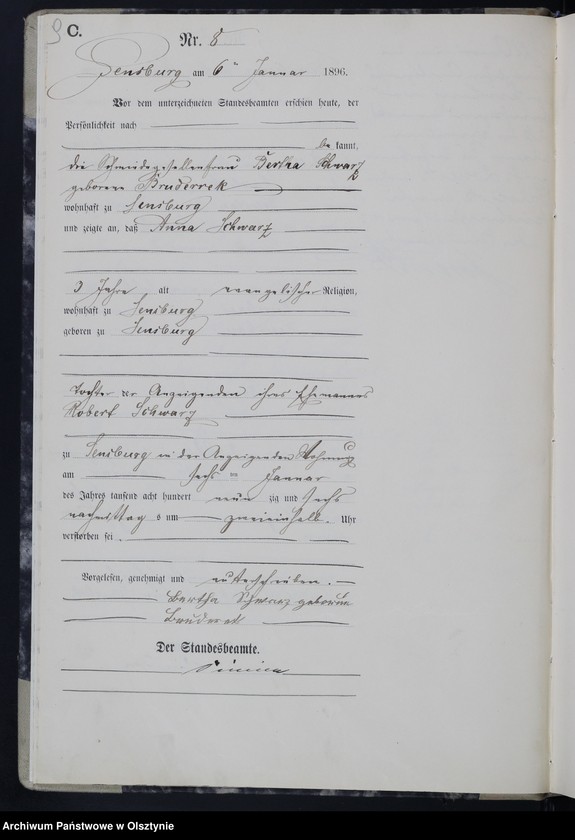 C.
Nr. 8
Sensburg am 6ten Januar 1896.
Vor dem unterzeichneten Standesbeamten erschien heute, der
Persönlichkeit nach
be kannt,
die Schmiedegesellenfrau Bertha Schwarz
geborene Bruderrek
wohnhaft zu Sensburg
und zeigte an, daß Anna Schwarz
3 Jahre alt evangelischer Religion,
wohnhaft zu Sensburg
geboren zu Sensburg
Tochter der Anzeigenden ihres Ehemannes
Robert Schwarz
zu Sensburg in der Anzeigenden Wohnung
am sechsten Januar
des Jahres tausend acht hundert neun zig und sechs
nachmittags um zweieinhalb Uhr
verstorben sei.
Vorgelesen, genehmigt und unterschrieben.
Bertha Schwarz geborene
Der Standesbeamte.
Archiwum Państwowe w Olsztynie